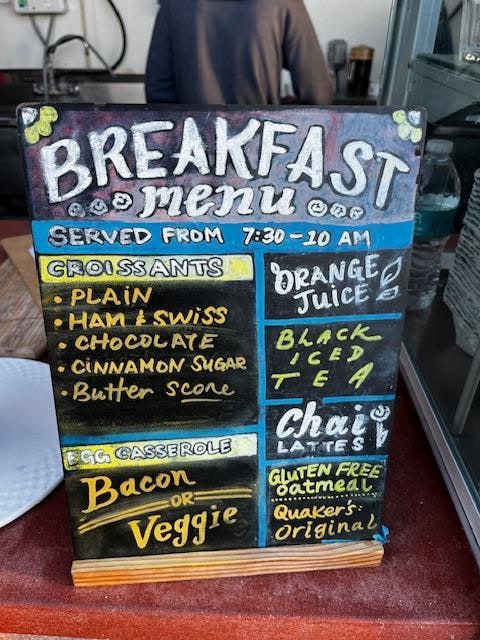 BREAKFAST
menu
SERVED FROM 7:30-10 AM
CROISSANTS
• PLAIN
• HAM & SWISS
• CHOCOLATE
• CINNAMON SUGAR
• Butter Scone
EGG CASSEROLE
Bacon
OR
Veggie
ORANGE
JUICE
BLACK
ICED
TEA
Chai
LATTES
GLUTEN FREE
oatmeal
Quaker's:
Original